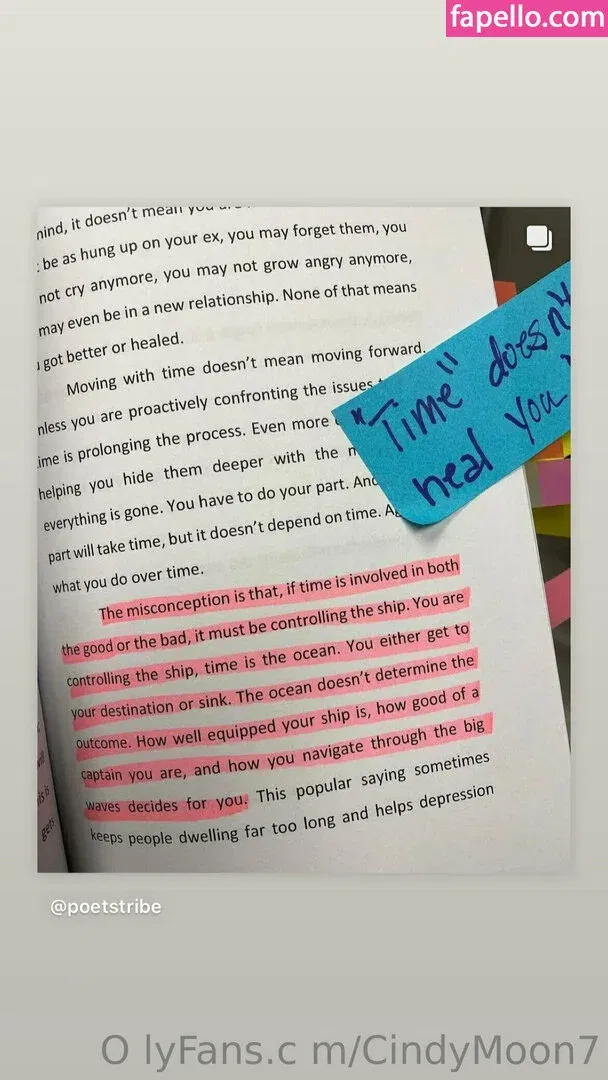 fapello.com
mind, it doesn't mean you
be as hung up on your ex, you may forget them, you
not cry anymore, you may not grow angry anymore,
may even be in a new relationship. None of that means
got better or healed.
Moving with time doesn't mean moving forward.
nless you are proactively confronting the issues
ime is prolonging the process. Even more
helping you hide them deeper with the
everything is gone. You have to do your part. And
part will take time, but it doesn't depend on time.
what you do over time.
The misconception is that, if time is involved in both
the good or the bad, it must be controlling the ship. You are
controlling the ship, time is the ocean. You either get to
your destination or sink. The ocean doesn't determine the
outcome. How well equipped your ship is, how good of a
captain you are, and how you navigate through the big
waves decides for you. This popular saying sometimes
keeps people dwelling far too long and helps depression
"Time" doesn't
heal you
gets
@poetstribe
O lyFans.c m/CindyMoon7